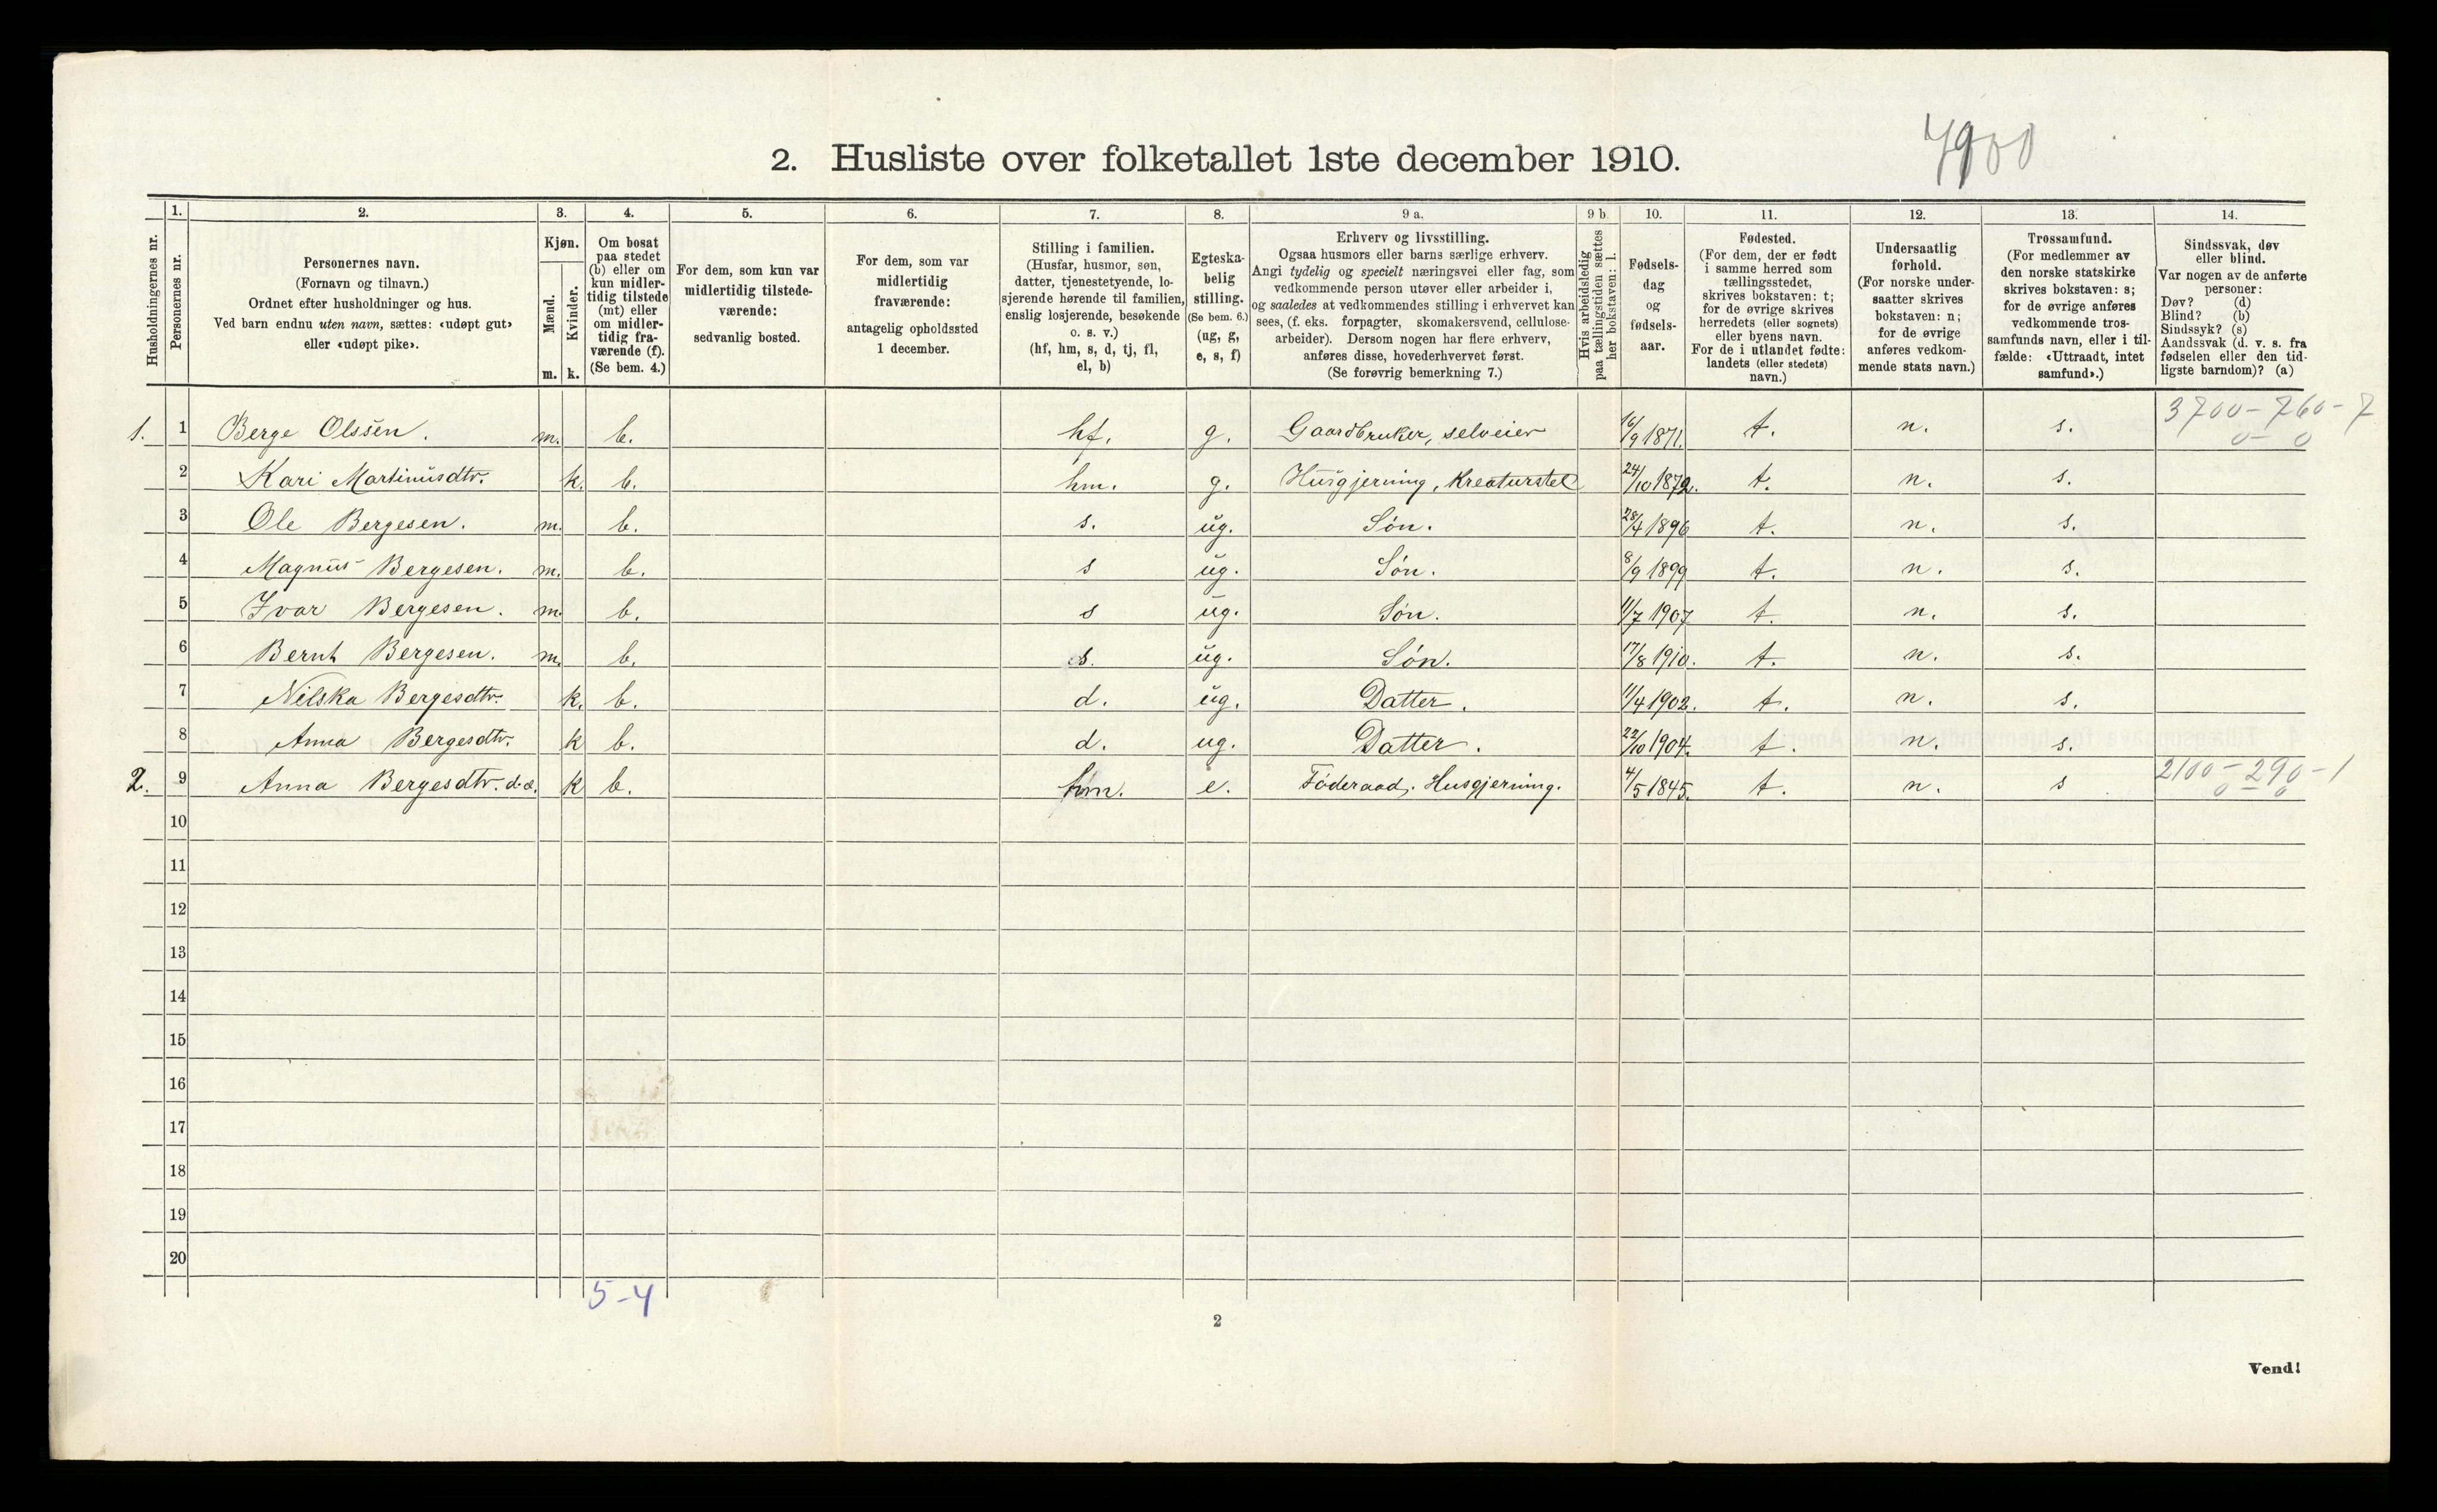 4900
2. Husliste over folketallet 1ste december 1910.
Husholdningernes nr.
1. Personernes nr.
2. Personernes navn.
(Fornavn og tilnavn.)
Ordnet efter husholdninger og hus.
Ved barn endnu uten navn, sættes: «udøpt gut»
eller «udøpt pike».
3. Kjøn.
Mænd. Kvinder.
m. k.
4. Om bosat
paa stedet
(b) eller om
kun midler-
tidig tilstede
(mt) eller
om midler-
tidig fra-
værende (f).
(Se bem. 4.)
5. For dem, som kun var
midlertidig tilstede-
værende:
sedvanlig bosted.
6. For dem, som var
midlertidig
fraværende:
antagelig opholdssted
1 december.
7. Stilling i familien.
(Husfar, husmor, søn,
datter, tjenestetyende, lo-
sjerende hørende til familien,
enslig losjerende, besøkende
o. s. v.)
(hf, hm, s, d, tj, fl,
el, b)
8. Egteska-
belig
stilling.
(Se bem. 6.)
(ug, g,
e, s, f)
9 a. Erhverv og livsstilling.
Ogsaa husmors eller barns særlige erhverv.
Angi tydelig og specielt næringsvei eller fag, som
vedkommende person utøver eller arbeider i,
og saaledes at vedkommendes stilling i erhvervet kan
sees, (f. eks. forpagter, skomakersvend, cellulose-
arbeider). Dersom nogen har flere erhverv,
anføres disse, hovederhvervet først.
(Se forøvrig bemerkning 7.)
9 b Hvis arbeidsledig
paa tællingstiden sættes
her bokstaven: l.
10. Fødsels-
dag
og
fødsels-
aar.
11. Fødested.
(For dem, der er født
i samme herred som
tællingsstedet,
skrives bokstaven: t;
for de øvrige skrives
herredets (eller sognets)
eller byens navn.
For de i utlandet fødte:
landets (eller stedets)
navn.)
12. Undersaatlig
forhold.
(For norske under-
saatter skrives
bokstaven: n;
for de øvrige
anføres vedkom-
mende stats navn.)
13. Trossamfund.
(For medlemmer av
den norske statskirke
skrives bokstaven: s;
for de øvrige anføres
vedkommende tros-
samfunds navn, eller i til-
fælde: «Uttraadt, intet
samfund».)
14. Sindssvak, døv
eller blind.
Var nogen av de anførte
personer:
Døv? (d)
Blind? (b)
Sindssyk? (s)
Aandssvak (d. v. s. fra
fødselen eller den tid-
ligste barndom)? (a)
3700-760-7
0-0
1. 1 Berge Olssen. m. b. hf. g. Gaardbruker, selveier 16/9 1871. t. n. s.
2 Kari Martinusdtr. k. b. hm. g. Husgjerning, Kreaturstel 24/10 1872. t. n. s.
3 Ole Bergesen. m. b. s. ug. Søn. 28/4 1896 t. n. s.
4 Magnus Bergesen. m. b. s ug. Søn. 8/9 1899 t. n. s.
5 Ivar Bergesen. m. b. s ug. Søn. 11/7 1907 t. n. s.
6 Bernt Bergesen. m. b. s. ug. Søn. 17/8 1910. t. n. s.
7 Nilska Bergesdtr. k. b. d. ug. Datter. 11/4 1902. t. n. s.
8 Anna Bergesdtr. k b. d. ug. Datter. 22/10 1904. t. n. s.
2. 9 Anna Bergesdtr. d.æ. k b. hm. e. Føderaad, Husgjerning. 4/5 1845. t. n. s 2100-290-1
0-0
10
11
12
13
14
15
16
17
18
19
20
5-4
2
Vend!